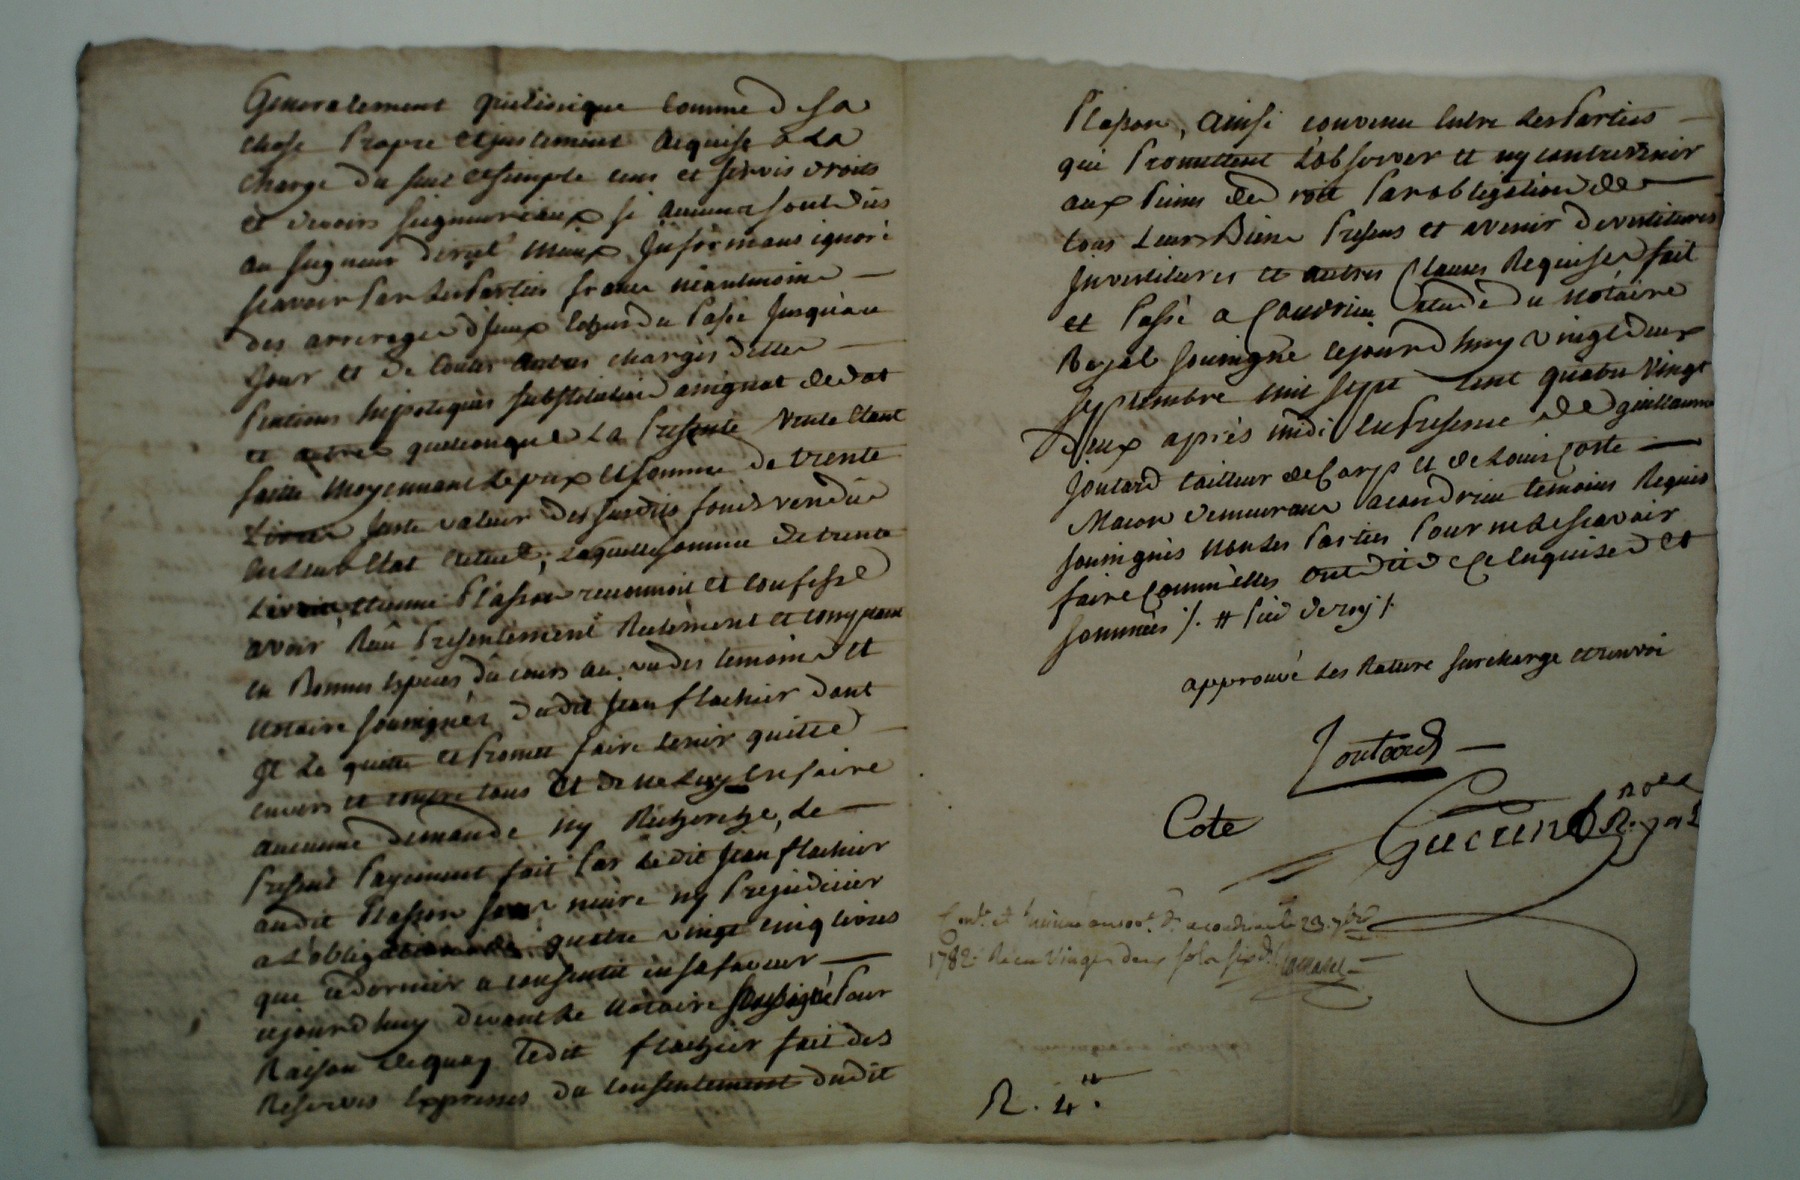 Generalement quelconque comme de sa
chose Propre et justement acquise a La
charge du seul et simple cens et servis droits
et devoirs seigneuriaux si aucuns sont dus
au seigneur direct mieux Informans ignoré
scavoir Par Les Parties franc néantmoins
des arrerages d'iceux echus du Passé Jusqu'au
Jour et de toutes autres charges dettes
Pentions hipoteques substitution assignat de dot
et autres quelconques La Presente Vente etant
faitte moyennant Le prix et somme de trente
Livres Juste valeur des susdits fonds vendus
en Leur Etat actuel; Laquelle somme de trente
Livres, Plasson reconnoit et confesse
avoir Reçu Presentement Réelement et comptant
en Bonnes Especes du cours au vu des temoins et
Notaire soussignés dudit Jean flachier dont
Il Le quitte et Promet faire tenir quitte
envers et contre tous et de ne Luy en faire
aucunne demande ny Recherche, Le
Present Payement fait Par Ledit Jean flachier
audit Plasson sans nuire ny Prejudicier
a L'obligation de quatre vingt cinq livres
que ce dernier a consentit en sa faveur
cejourd'huy devant Le Notaire soussigné Pour
Raison de quoy Ledit flachier fait des
Reserves Expresses du consentement dudit
Plasson, ainsi convenu entre Les Parties
qui Promettent L'observer et ny contrevenir
aux Peines de droit Par obligation de
tous Leurs Biens Presens et avenir devestitures
Investitures et autres Clauses Requises fait
et Passé a Condrieu Etude du Notaire
Royal soussigné cejourd'huy vingt deux
septembre mil sept cent quatre vingt
deux après midi en Presence de guillaume
Joutard tailleur de Corps et de Louis Coste
Macon demeurans a Condrieu temoins Requis
soussignés non Les Parties Pour ne scavoir
faire comm'elles ont dit de ce Enquises et
sommées /. # Pied de roy /.
approuvé Les Rature surcharge et renvoi
Joutard
Cote
Guerin Not.
Royal
Cont. et a condrieu le 23. 7bre
1782. Reçu vingt deux sols six d.
R. 4."